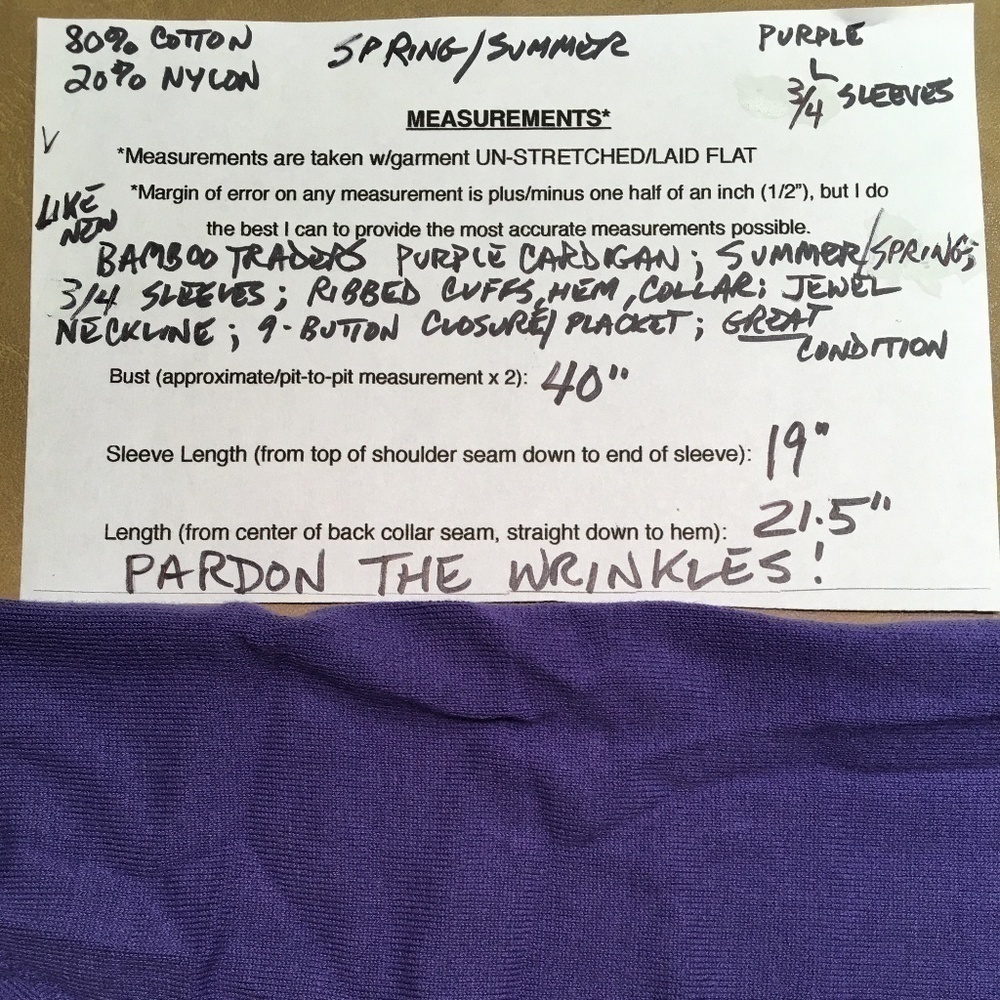 80% COTTON
20% NYLON
SPRING/SUMMER
PURPLE
L
3/4 SLEEVES
MEASUREMENTS*
V
*Measurements are taken w/garment UN-STRETCHED/LAID FLAT
LIKE
NEW
*Margin of error on any measurement is plus/minus one half of an inch (1/2"), but I do
the best I can to provide the most accurate measurements possible.
BAMBOO TRADERS PURPLE CARDIGAN; SUMMER/SPRING;
3/4 SLEEVES; RIBBED CUFFS, HEM, COLLAR; JEWEL
NECKLINE; 9-BUTTON CLOSURE/PLACKET; GREAT
CONDITION
Bust (approximate/pit-to-pit measurement x 2): 40"
Sleeve Length (from top of shoulder seam down to end of sleeve): 19"
Length (from center of back collar seam, straight down to hem): 21.5"
PARDON THE WRINKLES!